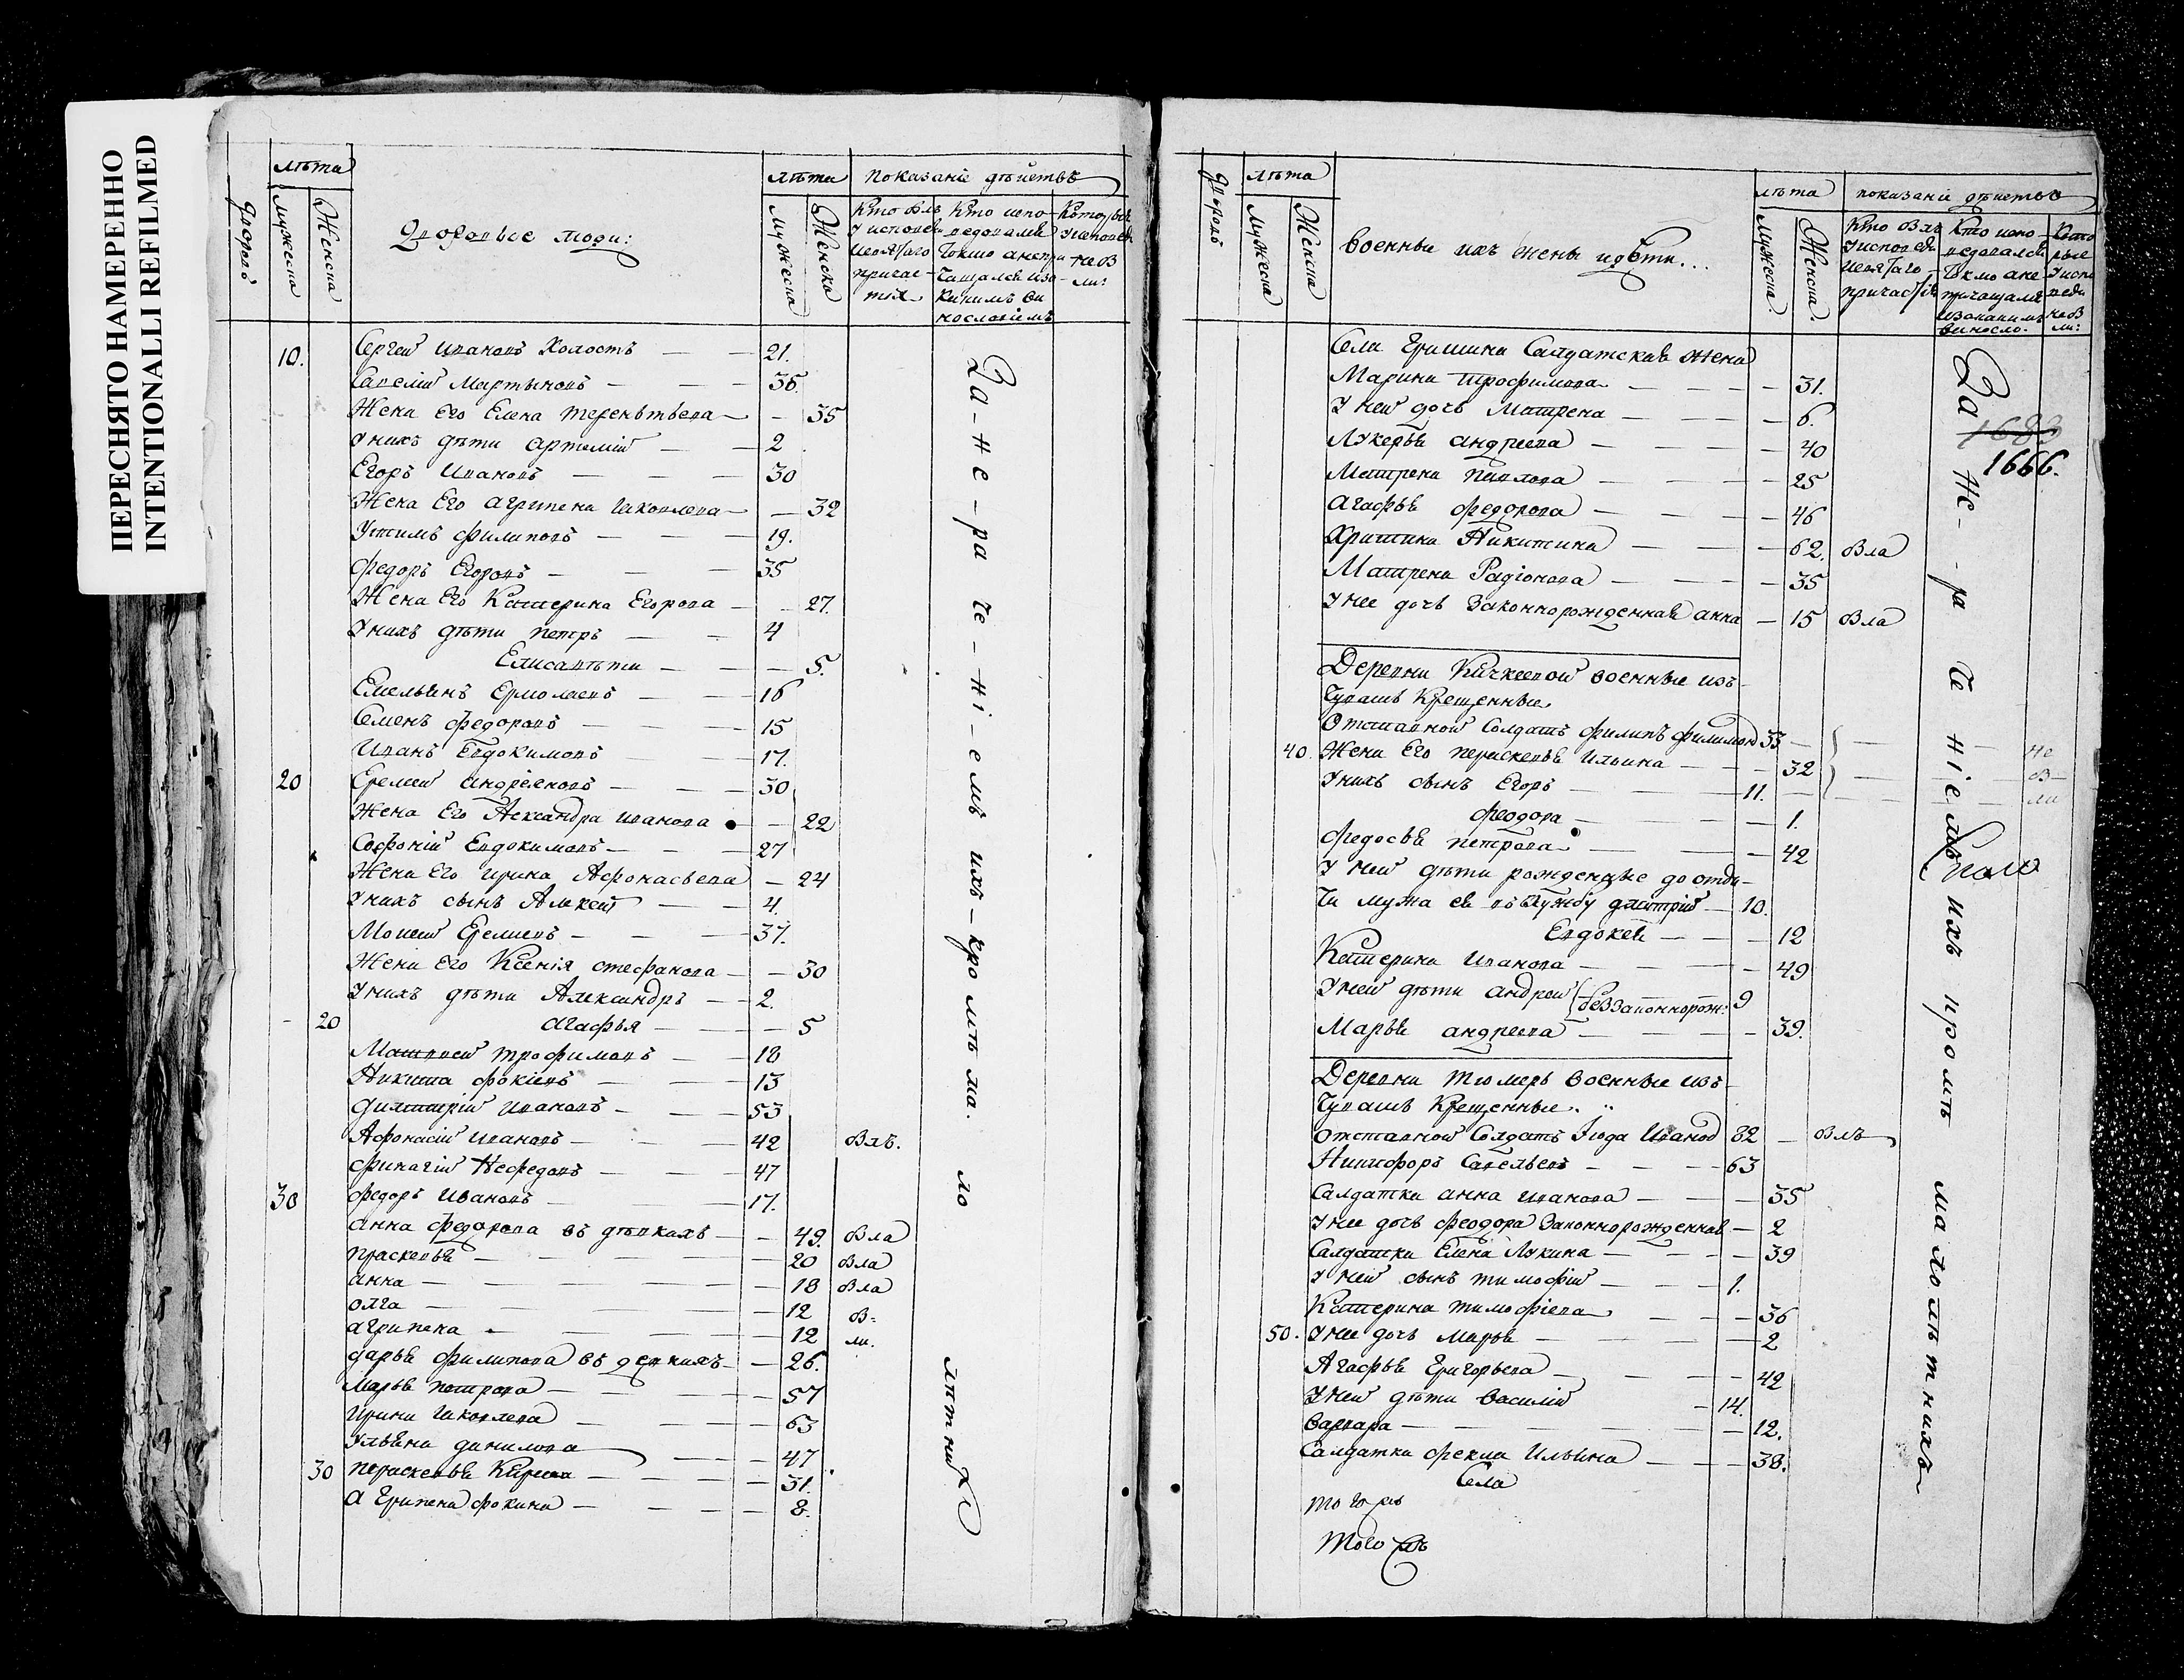 ПЕРЕСНЯТО НАМЕРЕННО
INTENTIONALLI REFILMED
Дворовъ
лѣта
Мужеска
Женска
Дворовые люди:
лѣта
Мужеска
Женска
Показаніе дѣйствъ
Кто былъ у исповеди и святаго причастия
Кто исповедовался токмо а не причащался и за какимъ винословіемъ
Которые у исповеди не были:
10. Сергей Ивановъ Холостъ — 21.
Савелій Мартыновъ — 36.
Жена Его Елена Терентьева — 35
У нихъ дѣти Артемій — 2
Егоръ Ивановъ — 30
Жена Его Агрипена Иаковлева — 32
Устимъ Филиповъ — 19.
Федоръ Егоровъ — 35
Жена Его Катерина Егорова — 27.
У нихъ дѣти Петръ — 4
Елисавѣта — 5.
Емельянъ Ермолаевъ — 16
Семенъ Федоровъ — 15
Иванъ Евдокимовъ 17.
20 Еремей Андреяновъ — 30
Жена Его Александра Иванова — 22
Софоній Евдокимовъ — 27
Жена Его Ирина Афонасьева — 24
У нихъ сынъ Алексей — 4.
Моисей Еремеевъ — 37.
Жена Его Ксенія Стефанова — 30
У нихъ дѣти Александръ — 2.
20 Агафья — 5
Матвей Трофимовъ — 18
Никита Фокіевъ — 13
Димитрій Ивановъ — 53
Афонасій Ивановъ — 42 Былъ.
Нефедовъ — 47
30 Федоръ Ивановъ — 17.
Анна Федорова въ дѣвкахъ — 49. Была
Праскевья — 20 Была
Анна — 18 Была
Олга — 12 Бы-
Агрипена — 12 ли.
Дарья Филипова въ девкахъ — 26.
Марья Петрова — 57
Ирина Иаковлева — 63
Ульяна Данилова — 47
30 Параскевья — 31.
Агрипена Фокина — 8.
За нерачениемъ ихъ кромѣ малолѣтнихъ
Дворовъ
лѣта
Мужеска
Женска
Военные ихъ жены и дѣти...
лѣта
Мужеска.
Женска.
показаніе дѣйствъ
Кто былъ у исповеди и святаго причастія
Кто исповедовался токмо а не причащался и за какимъ винесло.
Которые у исповеди не были:
Села Гришина Салдатская Жена
Марина Трофимова — 31.
У ней дочь Матрена — 6.
Лукерья Андреева — 40
Матрена Павлова — 25
Агафья Федорова — 46
Христина Никитина — 62. Была
Матрена Радіонова — 35
У нее дочь Законнорожденная Анна — 15 Была
Деревни Кичкеевой военные изъ
Чувашъ Крещенные
Отставной Солдатъ Филипъ Филимонов 33
40. Жена Его Параскевья Ильина — 32
У нихъ сынъ Егоръ — 11.
Феодора — 1.
Не бы ли
Федосья Петрова — 42
У ней дѣти рожденные до отда-
чи мужа ея въ службу Дмитрій — 10.
Евдокея — 12
Катерина Иванова — 49
У ней дѣти Андрей беззаконнорож: 9
Марья Андреева — 39.
Деревни Тюмерь военные изъ
Чувашъ Крещенные.
Отставной Солдатъ Іюда Иванов 82 — Былъ
Никифоръ Савельевъ — 63
Салдатка Анна Иванова — 35
У нее дочь Феодора Законнорожденная — 2
Салдатка Елена Лукина — 39
У ней сынъ Тимофій — 1.
Катерина Тимофіева — 36
50. У нее дочь Марья — 2
Агафья Григорьева — 42
У ней дѣти Василій — 14.
Варвара — 12.
Салдатка Фекла Ильина — 38.
Села
За нерачениемъ ихъ кромѣ малолѣтнихъ
1666.